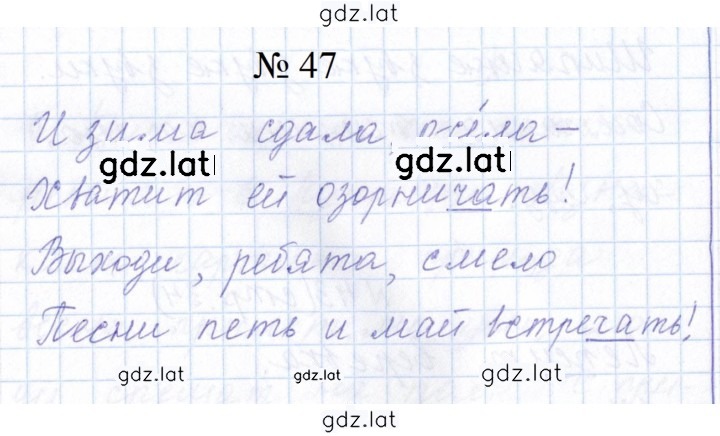 gdz.lat
№ 47
И зима сдала дела –
gdz.lat gdz.lat
Хватит ей озорничать!
Выходи, ребята, смело
Песни петь и май встречать!
gdz.lat gdz.lat gdz.lat
gdz.lat